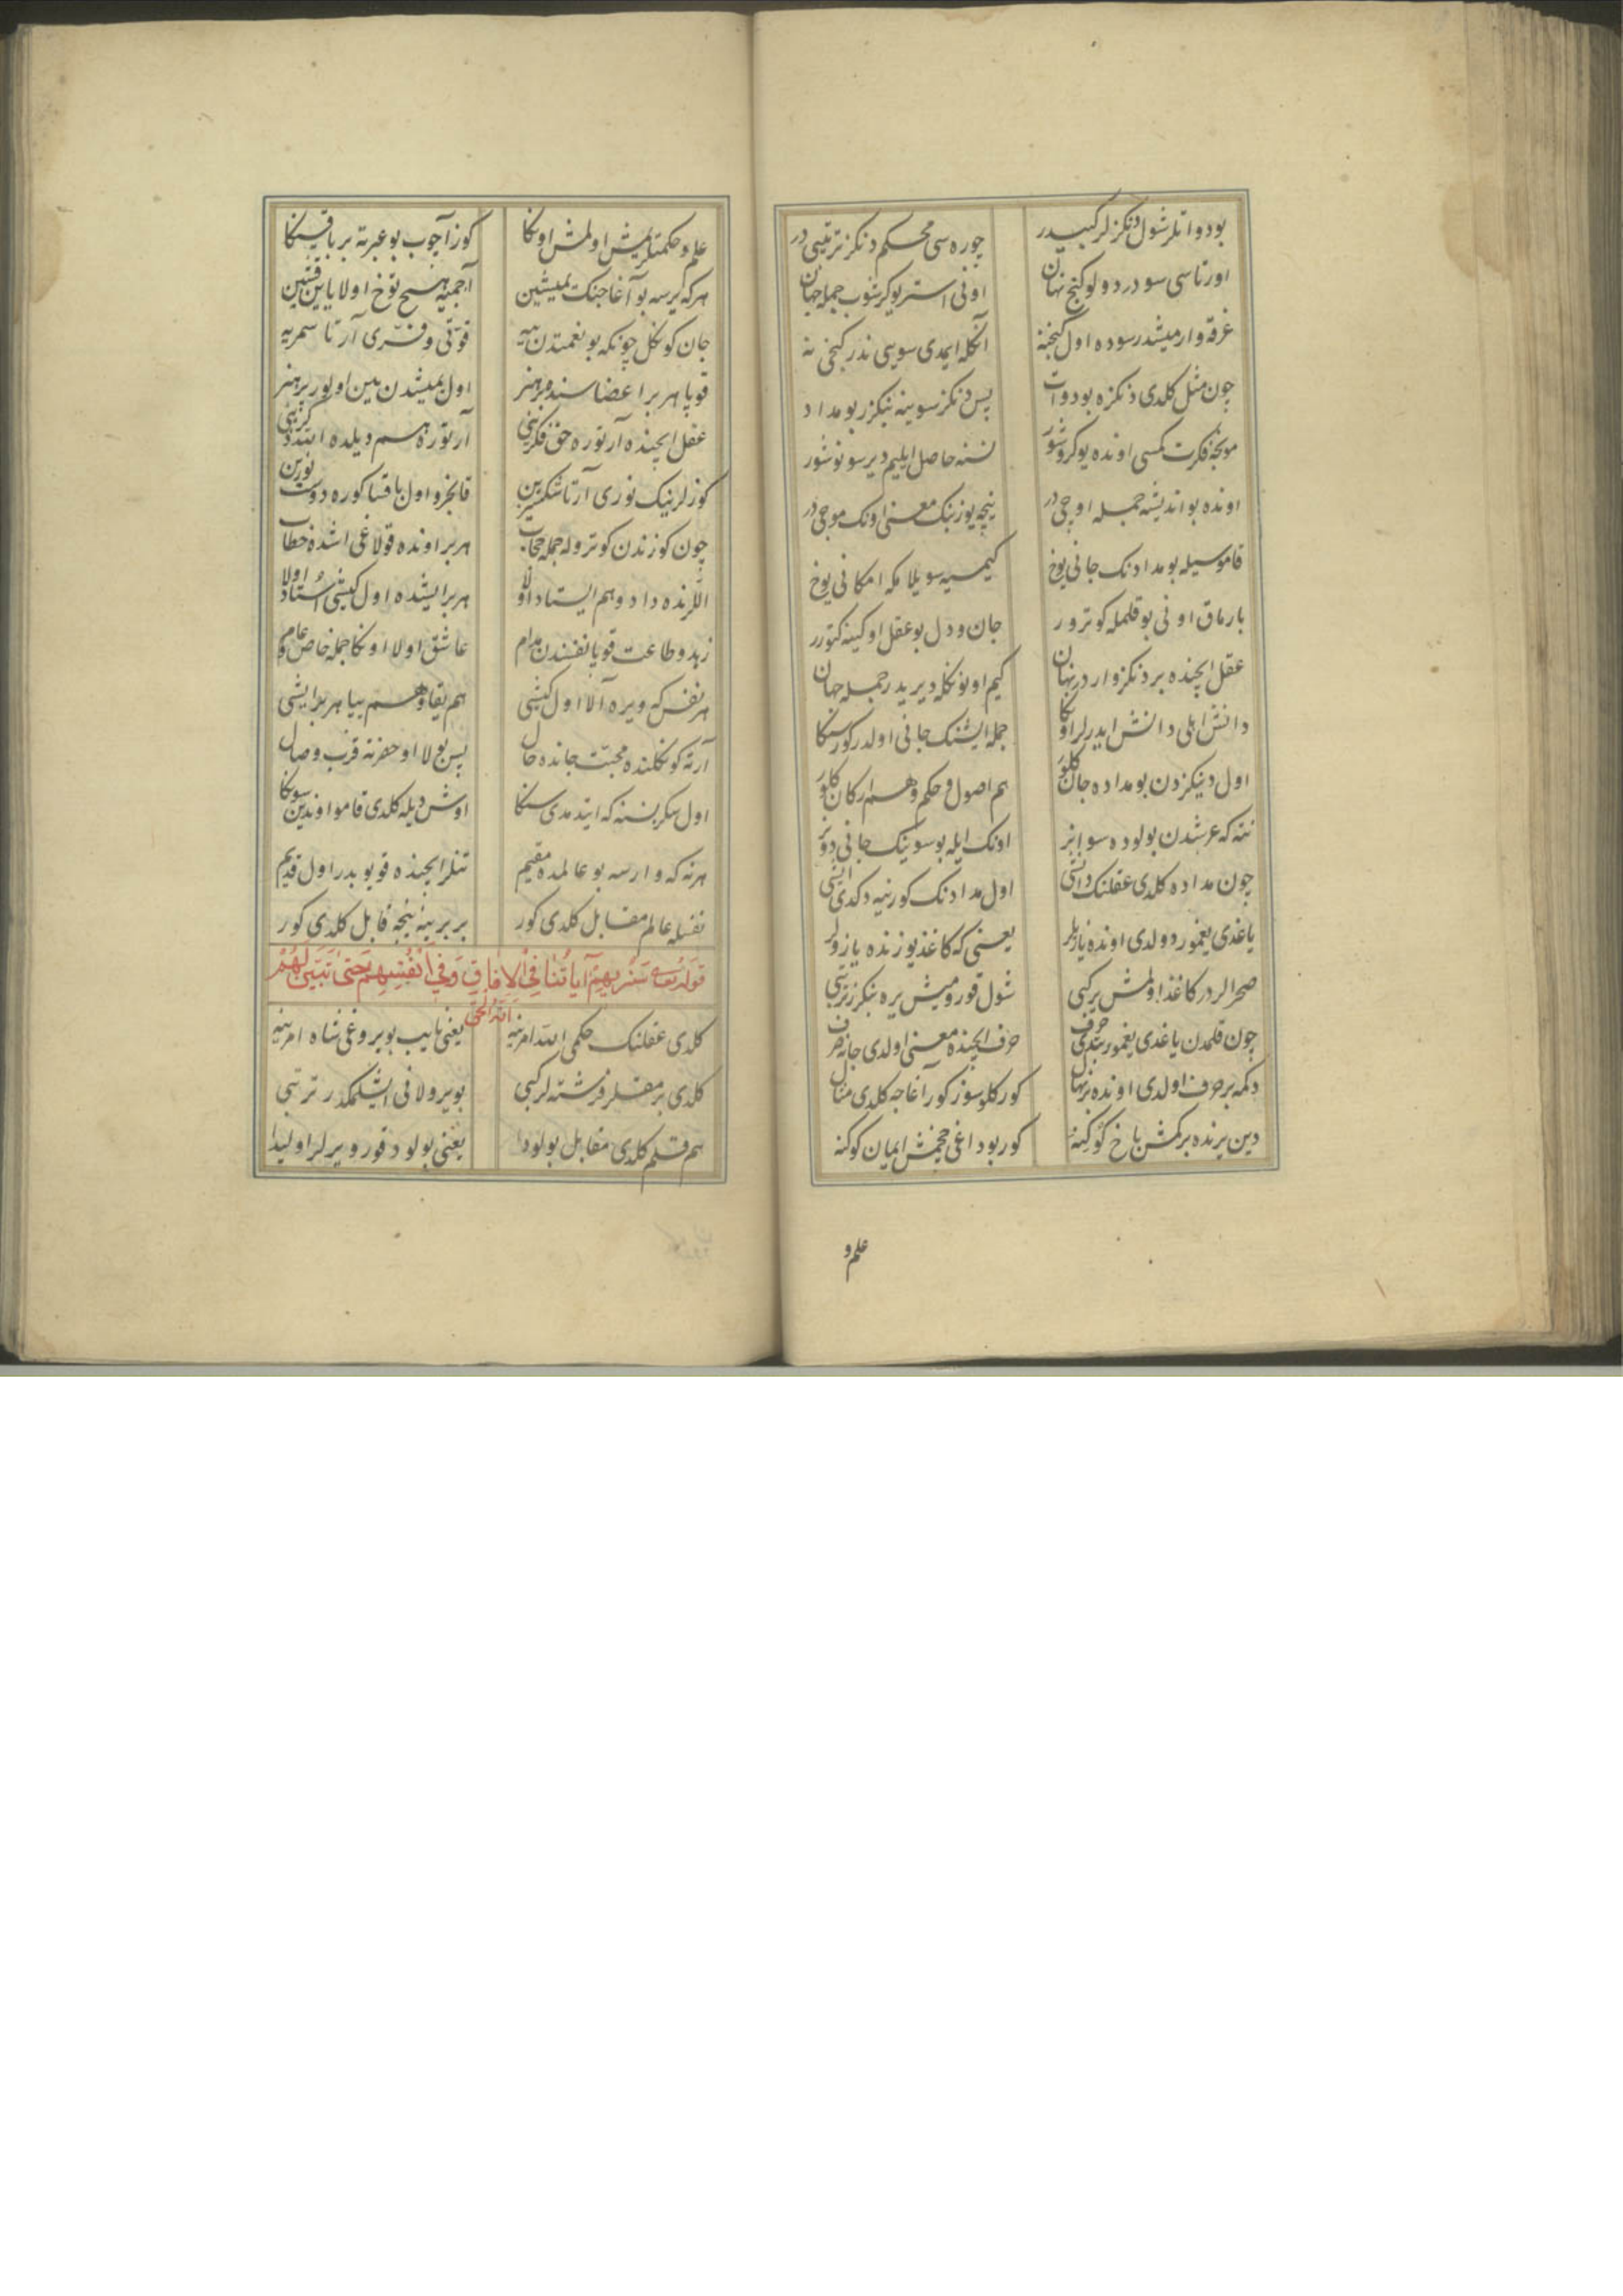 بودواتلر شول دنكزلر كبيدر چوره سى محكم دنكز ترتيبى در
اورتاسى سودر دولو كنج نهان اونى استر يوكرشوب جمله جهان
غرقه وارميشدر سوده اول كنجنه آنكله ايمدى سويى ندر كنجى نه
چون مثل كلدى دنكزه بو دوات پس دنكز سوينه بنكزر بو مداد
موجه فكرت كمسى اونده يوكرشور نسنه حاصل ايليم دير سونوشور
اونده بو انديشه جمله اوچى در نيچه يوز بنك معنى اونك موجى در
قاموسيله بو مدادنك جانى يوخ كيمسيه سويلامكه امكانى يوخ
بارماق اونى بو قلمله كوترور جان و دل بو عقل اوكينه كتورر
عقل ايچنده بر دنكز واردر نهان كيم اونونكله ديريدر جمله جهان
دانش اهلى دانش ايدرلر اونكا جمله ايشنك جانى اولدر كورسنكا
اول دنيكزدن بو مداده جان كلور هم اصول و حكم و هم اركان كلور
نته كه عرشدن بولوده سو اينر اونك ايله بو سونيك جانى دونر
چون مداده كلدى عقلنك دانشى اول مدادنك كورنيه دكدى ايشى
ياغدى يغمور دولدى اونده يازيلر يعنى كه كاغذ يوزنده يازولر
صحرالردر كاغذ اولمش يركبى شول قورومش يره بنكزر ترتبى
چون قلمدن ياغدى يغمور بتدى حرف حرف ايچنده معنى اولدى جانه صرف
دكمه بر حرف اولدى اونده بر نهال كوركلو سوز كور آغاجه كلدى مثال
دين يرنده بركمش باخ كوكينه كور بوداغى چخمش ايمان كوكنه
علم و
علم و حكمتلر يمش اولمش اونكا كوز آچوب بو عبرته بر باقسنكا
هر كه يرسه بو آغاجنك يميشين آجميه هيچ توخ اولا ياين قيشين
جان كونكل چونكه بو نعمتدن ييه قوتى و فرى آرتا سمريه
قويا هر بر اعضاسنده بر هنر اول يميشدن بين اولور پرهنر
عقل ايچنده آرتوره حق فكرينى آرتوره هم ديلده ايتدوك ذكرينى
كوزلرينيك نورى آرتا شكسيزين قانجرو اول باقسا كوره دوست نورين
چون كوزندن كوتروله جمله حجاب هر بر اونده قولاغى اشده خطاب
اللرنده داد و هم ايستاد اولا هر بر ايشده اول كيشى استاد اولا
زهد و طاعت قويا نفسندن مدام عاشق اولا اونكا جمله خاص و عام
هر نفس كه ويره آلا اول كيشى هم يقا و هم ييا هر بر ايشى
آرته كونكلنده محبت جانده حال پس يوع اولا او حضرته قرب وصال
اول سكز نسنه كه ايتدمدى سنكا اوش ديله كلدى قامو اوندين سونكا
هر نه كه وارسه بو عالمده مقيم تنلر ايچنده قويوبدر اول قديم
نفسله عالم مقابل كلدى كور بر برينه نيجه قابل كلدى كور
قوله تعالى سَنُرِيهِمْ آيَاتُنَا فِي الْآفَاقِ وَفِي أَنْفُسِهِمْ حَتَّىٰ يَتَبَيَّنَ لَهُمْ اَنَّهُ الْحَقُّ
كلدى عقلنك حكمى الله امرينه يعنى نايب بويروغى شاه امرينه
كلدى برمقلر فرشته لركبى بويرولانى ايشلمكدر ترتبى
هم قلم كلدى مقابل بولودا يعنى بولود قورو يرلر اوليدا